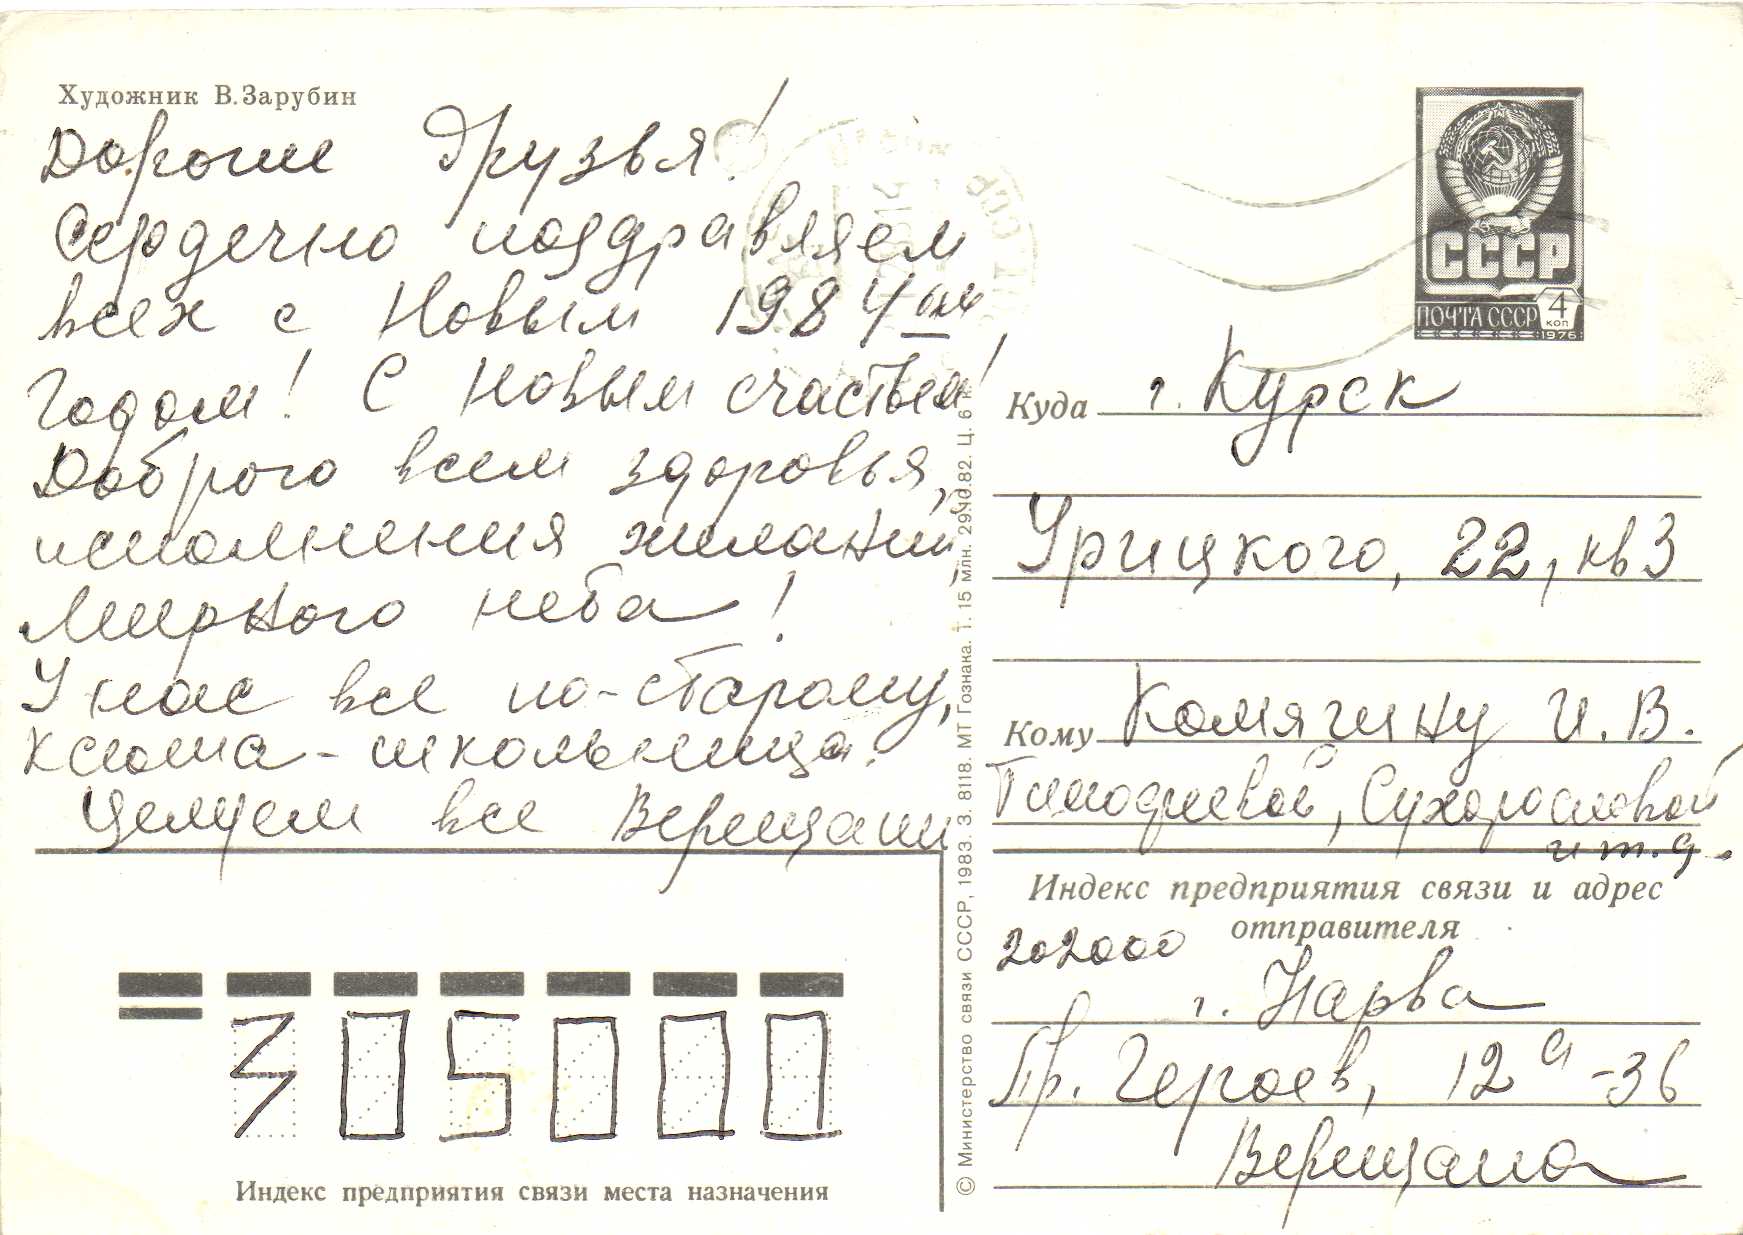 Художник В.Зарубин
Дорогие друзья!
Сердечно поздравляем
всех с Новым 1984 ым
годом! С новым счастьем!
Доброго всем здоровья,
исполнения желаний,
мирного неба!
У нас все по-старому,
Ксюша - школьница.
Целуем все Верещагины
СССР
ПОЧТА СССР
4
КОП
1976
Куда г. Курск
Урицкого, 22, кв 3
Кому Комягину И. В.
Тимофеевой, Сухорословой
и т. д.
Индекс предприятия связи и адрес
отправителя
202000
г. Нарва
Пр. Героев, 12 а - 36
305000
Индекс предприятия связи места назначения
© Министерство связи СССР, 1983. З. 8118. МТ Гознака. 1. 15 млн. 29.10.82. Ц. 6 к.